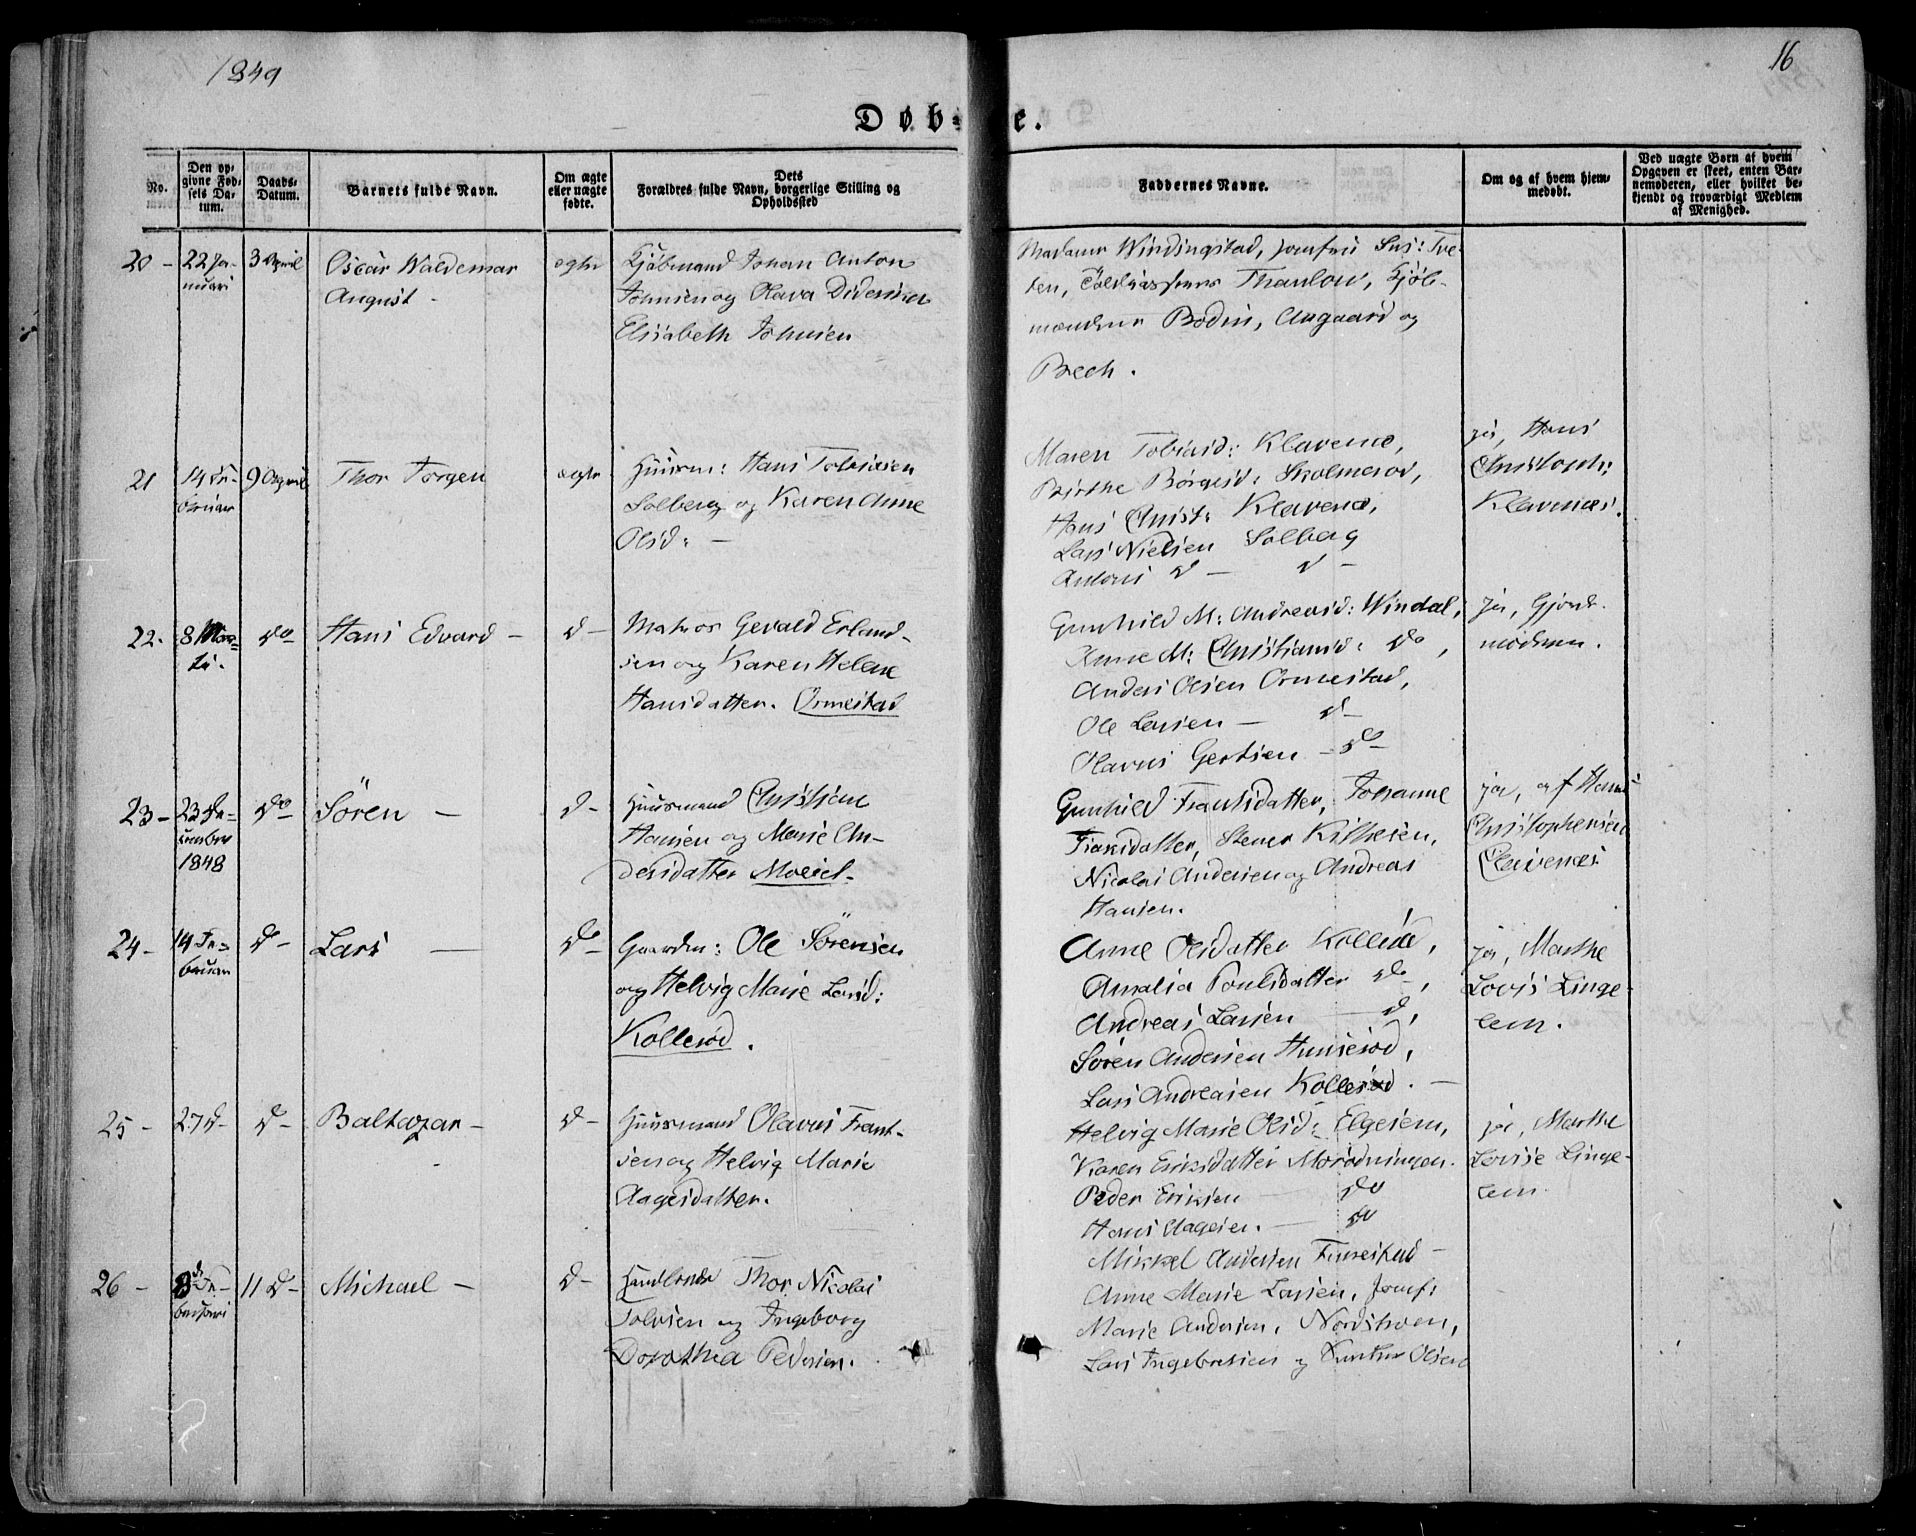 1849
16
Døb-
e.
No.
Den op-
givne Fød-
sels Da-
tum.
Daabs-
Datum.
Barnets fulde Navn.
Om ægte
eller uægte
fødte.
Dets
Forældres fulde Navn, borgerlige Stilling og
Opholdssted
Faddernes Navne.
Om og af hvem hjem-
medøbt.
Ved uægte Børn af hvem
Opgaven er skeet, enten Bar-
nemoderen, eller hvilket be-
kjendt og troværdigt Medlem
af Menighed.
20 - 22 Ja-
nuari
3 April
Oscar Waldemar
August -
ægte
Kjøbmand Johan Anton
Johnsen og Olava Didericha
Elisabeth Johnsen
Madame Windingstad, Jomfru Sus: Tve-
ten, Thaulow, Kjøb-
mændene Bodin, Augaard og
Bech.
21
14 Fe-
bruar
9 April
Thor Jørgen
ægte
Huusm: Hans Tobiasen
Solberg og Karen Anne
Olsd: -
Maren Tobiasd: Klavenæ,
Birthe Børgesd: Skolmerød,
Hans Christ: Klavenæ,
Lars Nielsen Solberg
Antons d - d -
ja, Hans
Christoph:
Klavenæs.
22.
8 Mar-
ti.
do
Hans Edvard -
d -
Matros Gevald Erland-
sen og Karen Helene
Hansdatter. Ormestad
Gunhild M: Andreasd: Windal,
Anne M: Christiansd: do,
Anders Olsen Ormestad,
Ole Larsen - d -
Olavus Gertsen - do -
ja, Gjord-
moderen.
23 -
23 De-
cember
1848
do
Sören -
d -
Huusmand Christian
Hansen og Marie An-
dersdatter Moeiet.
Gunhild Frantsdatter, Johanne
Fransdatter, Stener Kittelsen,
Nicolai Andersen og Andreas
Hansen.
ja, af Hans
Christophersen
Clavenæs
24 -
14 Fe-
bruar
d -
Lars -
do
Gaardm: Ole Sörensen
og Helvig Marie Larsd:
Kollerød.
Anne Olsdatter Kollerød,
Amalia Poulsdatter do,
Andreas Larsen - d,
Sören Andersen Hunserød,
Lars Andreasen Kollerød. -
ja, Marthe
Lovis Linge-
lem.
25 -
27 d -
d -
Baltazar -
d -
Huusmand Olavus Frant-
sen og Helvig Marie
Aagesdatter.
Helvig Marie Olsd: Elgesem,
Karen Eriksdatter Morødningen.
Peder Eriksen do
Hans Aagesen. - do
Mikkel Andersen Furestad -
ja, Marthe
Lovise Linge-
lem.
26 -
8de Fe-
bruari
11 d -
Michael -
d -
Handlende Thor Nicolai
Tolvsen og Ingeborg
Dorothea Pedersen.
Anne Marie Larsen, Jomf:
Marie Andersen, Nordstroem,
Lars Ingebretsen og Olsen